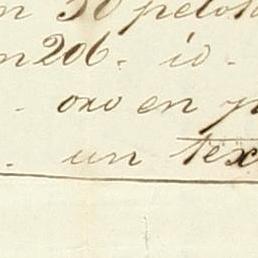 n 50 pelot
n 206. id.
- oro en p
. un tex